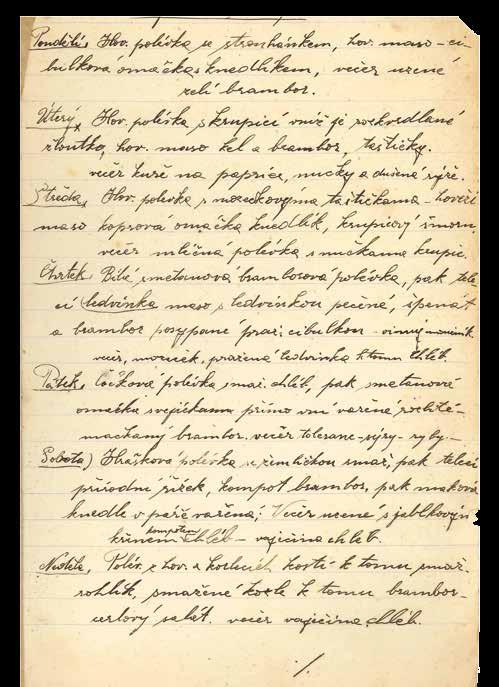 Pondělí, Hov. polévka se strouhánkem, hov. maso - ci-
bulková omáčka s knedlíkem, večer uzené
zelí brambor.
Úterý, Hov. polévka s krupicí v níž je rozkvrdlané
žloutko, hov. maso kel a brambor, taštičky.
večer kuře na paprice, nudky a dušená rýže.
Středa, Hov. polévka s taštičkama - hovězí
maso koprová omáčka knedlík, krupicový šmorn
večer mléčná polévka s nučkama krupic.
Čtvrtek, Bílá smetanová bramborová polévka, pak tele-
cí ledvinka maso s ledvinkou pečené, špenát
a brambor posypané praž. cibulkou -
več, pražená ledvinka k tomu chléb.
Pátek, čočková polévka smaž. chléb, pak smetanové
omáčka s vejíčkama přímo v ní vařené rozště-
mačkaný brambor. večer - sýry - ryby. -
Sobota) Hrášková polévka se žemličkou smaž, pak telecí
přírodní řízek, kompot brambor, pak maková
knedle v páře vařená; Večer uzené s jablkovým
křenem kompotem chléb - vaječina chleb.
Neděle, Polév. z hov. a kostí k tomu smaž.
rohlík, smažené kozle k tomu brambor-
urlový salát. večer vaječina chléb.
./.